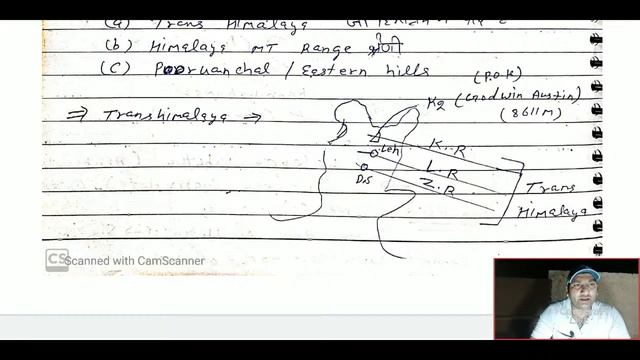 (a) Trans Himalaya
(b) Himalaya MT Range श्रेणी
(c) Pooruanchal / Eastern hills
(P.O.K)
K2 (Godwin Austin)
(8611 M)
⇒ Transhimalaya →
Leh
K.R
L.R
Z.R
D.S
Trans
Himalaya
CS Scanned with CamScanner